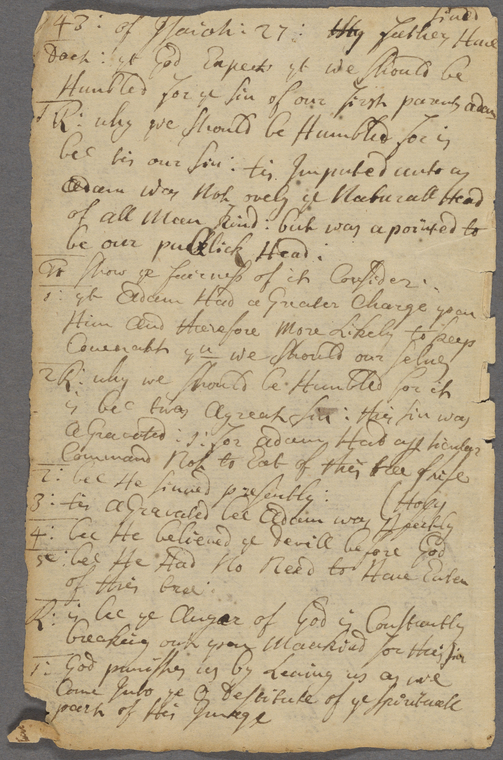 43: of Isaiah: 27: thy father Have sined
Doct: yt God Expects yt we should be
Humbled for ye sin of our first parents adam
1 R: why we should be Humbled for is
bec tis our sin: tis Imputed unto us
Adam was Not only ye Naturall Head
of all Man kind: but was apointed to
be our publick Head:
To show ye fairness of it Consider:
1: yt Adam Had a Greater Charge upon
Him and therefore More Likely to keep
Covenant yn we should our selves
2 R: why we should be Humbled for it
is bec twas a great sin: this sin was
agravated: 1: for adam Had a
Command Not to Eat of this tree
2: bec He sinned presently:
3: tis agravated bec Adam was perfectly Holy
4: bec He believed ye Devill before God
5: bec He Had No Need to Have Eaten
of this tree:
R: is bec ye Anger of God is Constantly
breaking out upon Mankind for this sin
1: God punishes us by Leaving us as we
Come Into ye Destitute of ye spirituall
part of His Image